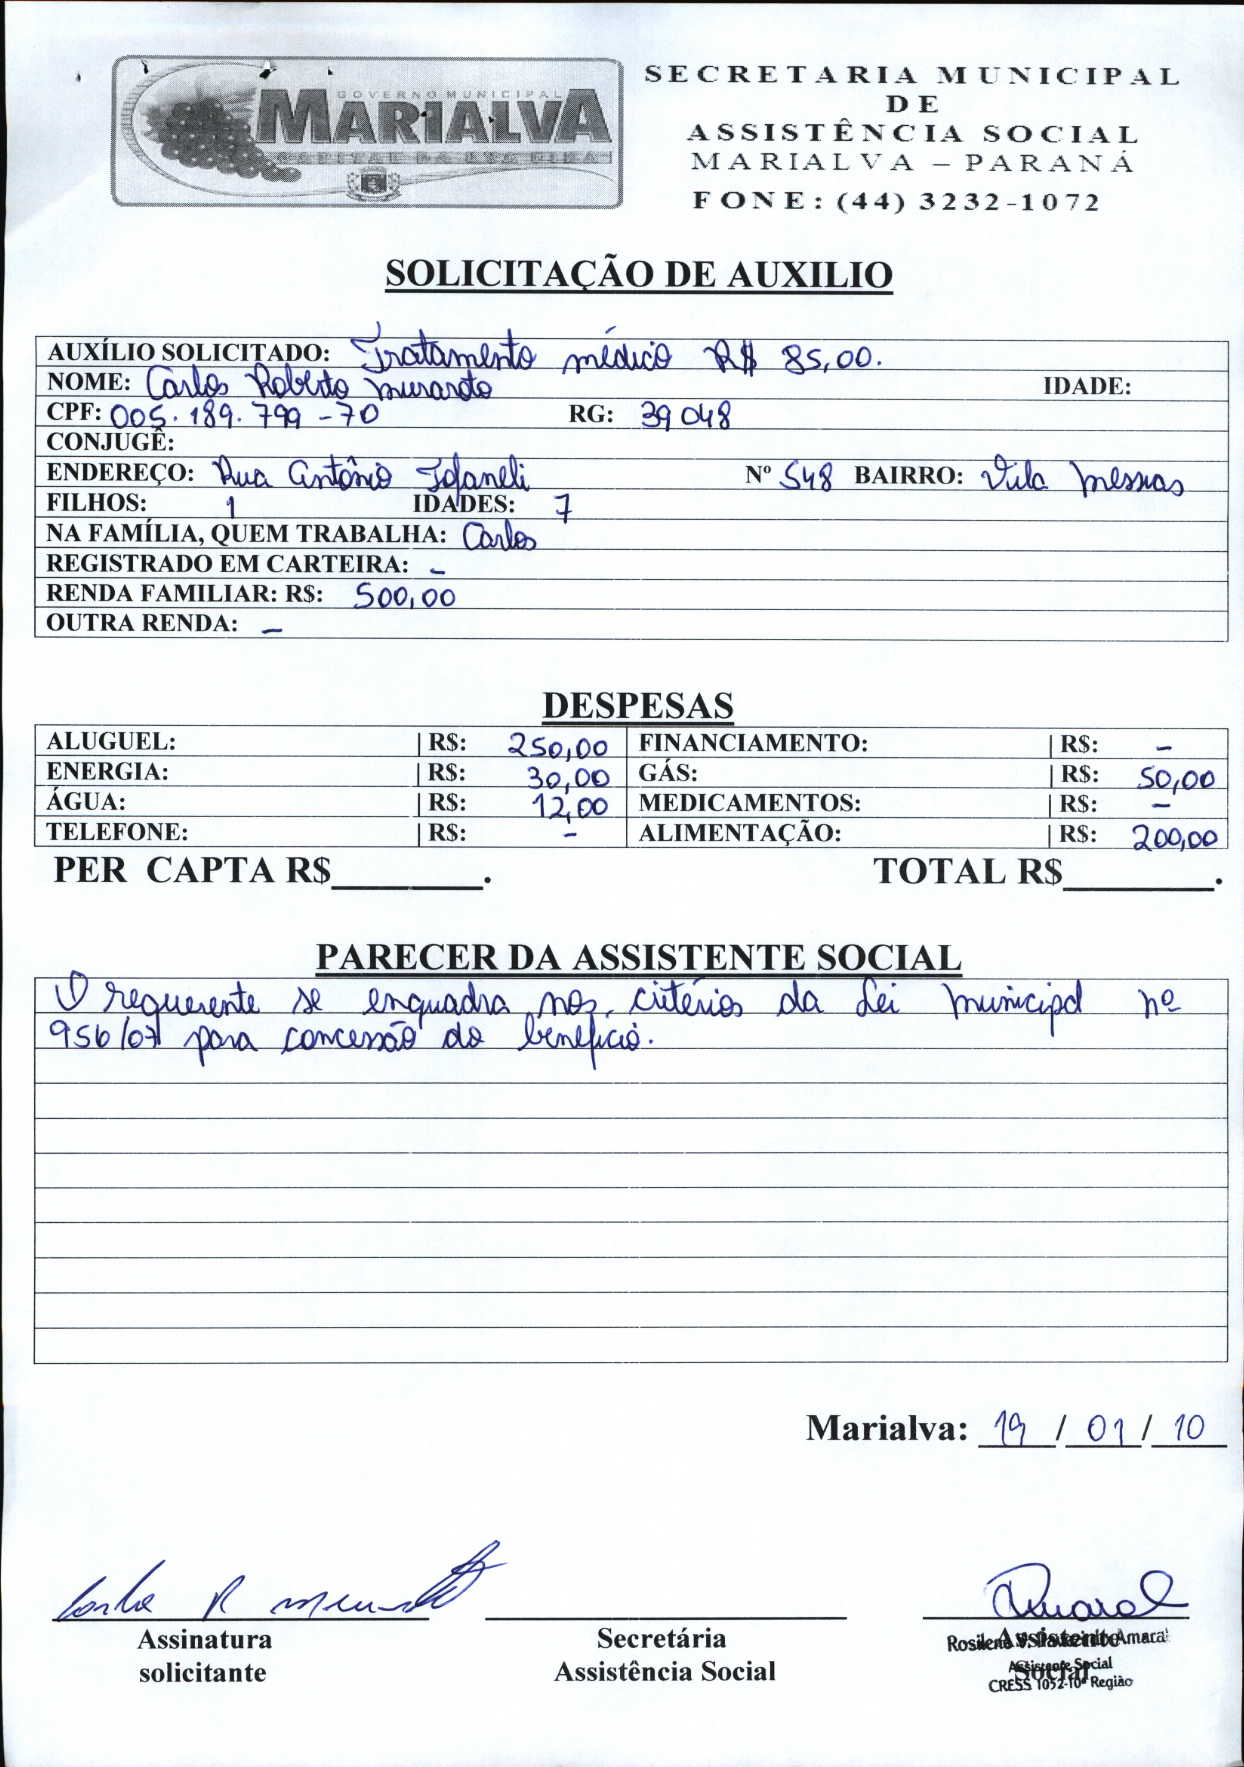 GOVERNO MUNICIPAL
MARIALVA
CAPITAL DA UVA FINA
SECRETARIA MUNICIPAL
DE
ASSISTÊNCIA SOCIAL
MARIALVA – PARANÁ
FONE: (44) 3232-1072
SOLICITAÇÃO DE AUXILIO
AUXÍLIO SOLICITADO: Tratamento médico R$ 85,00.
NOME: Carlos Roberto Muraroto IDADE:
CPF: 005.189.799-70 RG: 39048
CONJUGÊ:
ENDEREÇO: Rua Antônio Nº 548 BAIRRO: Vila Messias
FILHOS: 1 IDADES: 7
NA FAMÍLIA, QUEM TRABALHA: Carlos
REGISTRADO EM CARTEIRA: -
RENDA FAMILIAR: R$: 500,00
OUTRA RENDA: -
DESPESAS
ALUGUEL: | R$: 250,00 FINANCIAMENTO: | R$: -
ENERGIA: | R$: 30,00 GÁS: | R$: 50,00
ÁGUA: | R$: 12,00 MEDICAMENTOS: | R$: -
TELEFONE: | R$: - ALIMENTAÇÃO: | R$: 200,00
PER CAPTA R$________. TOTAL R$________.
PARECER DA ASSISTENTE SOCIAL
O requerente se enquadra nos critérios da Lei Municipal nº
956/07 para concessão do benefício.
Marialva: 19 / 01 / 10
Amaral
Assinatura
solicitante
Secretária
Assistência Social
Assistente
Social
Rosilene Amaral
Assistente Social
CRESS 1052-10ª Região